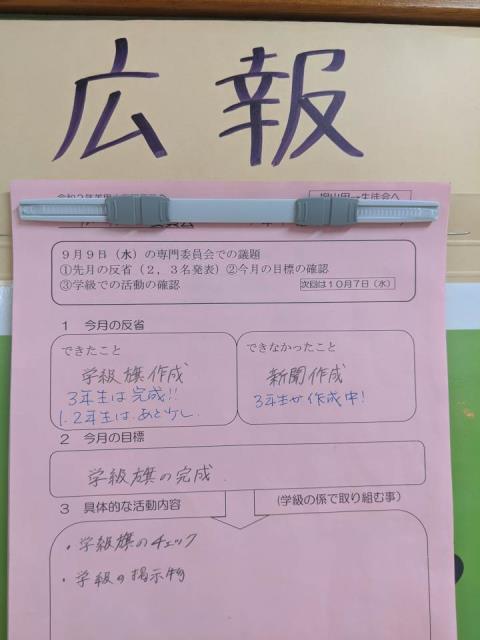 広報
９月９日（水）の専門委員会での議題
①先月の反省（２，３名発表）②今月の目標の確認
③学級での活動の確認
次回は１０月７日（水）
１　今月の反省
できたこと
学級旗作成
３年生は完成!!
１.２年生は、あと少し.
できなかったこと
新聞作成
３年生が作成中！
２　今月の目標
学級旗の完成
３　具体的な活動内容
（学級の係で取り組む事）
・学級旗のチェック
・学級の掲示物